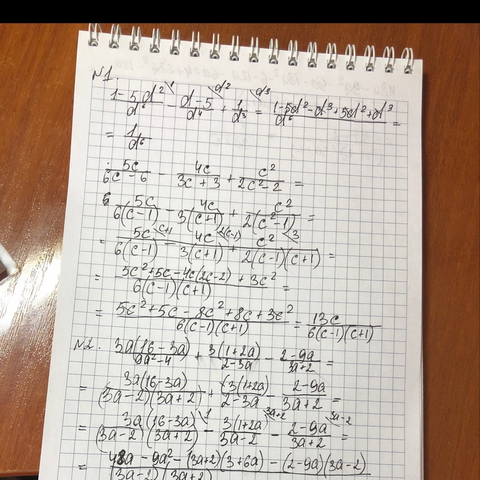 N1.
(1-5d²)/d⁶ - (d-5)/d⁴ + 1/d³ = (1-5d²-d³+5d²+d³)/d⁶ =
= 1/d⁶
5c/(6c-6) - 4c/(3c+3) + c²/(2c²-2) =
5c/6(c-1) - 4c/3(c+1) + c²/2(c²-1) =
= 5c/6(c-1) - 4c/3(c+1) + c²/2(c-1)(c+1) =
= (5c²+5c-4c(2c-2)+3c²)/6(c-1)(c+1) =
= (5c²+5c-8c²+8c+3c²)/6(c-1)(c+1) = 13c/6(c-1)(c+1)
N2. 3a(16-3a)/(9a²-4) + 3(1+2a)/(2-3a) - (2-9a)/(3a+2) =
= 3a(16-3a)/(3a-2)(3a+2) + 3(1+2a)/(2-3a) - (2-9a)/(3a+2) =
= 3a(16-3a)/(3a-2)(3a+2) - 3(1+2a)/(3a-2) - (2-9a)/(3a+2) =
= (48a-9a²-(3a+2)(3+6a)-(2-9a)(3a-2))/(3a-2)(3a+2)